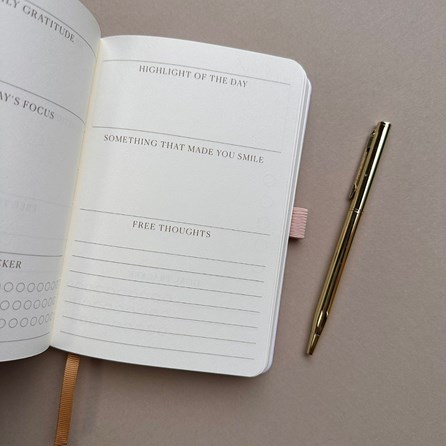 LY GRATITUDE
AY'S FOCUS
CKER
HIGHLIGHT OF THE DAY
SOMETHING THAT MADE YOU SMILE
FREE THOUGHTS